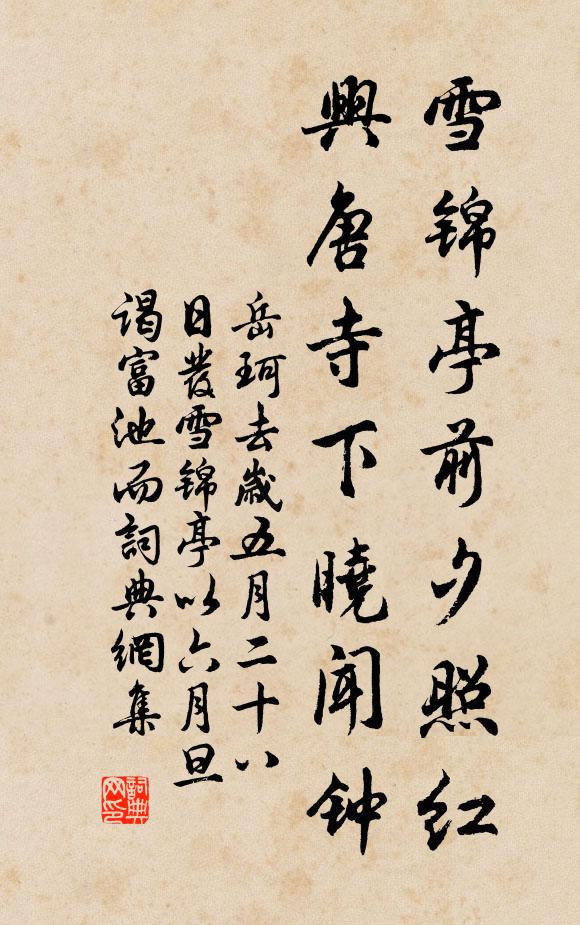 雪锦亭前夕照红
興唐寺下曉闻钟
岳珂去歲五月二十八
日發雪锦亭以六月旦
谒富池而詞典網集
詞典网印